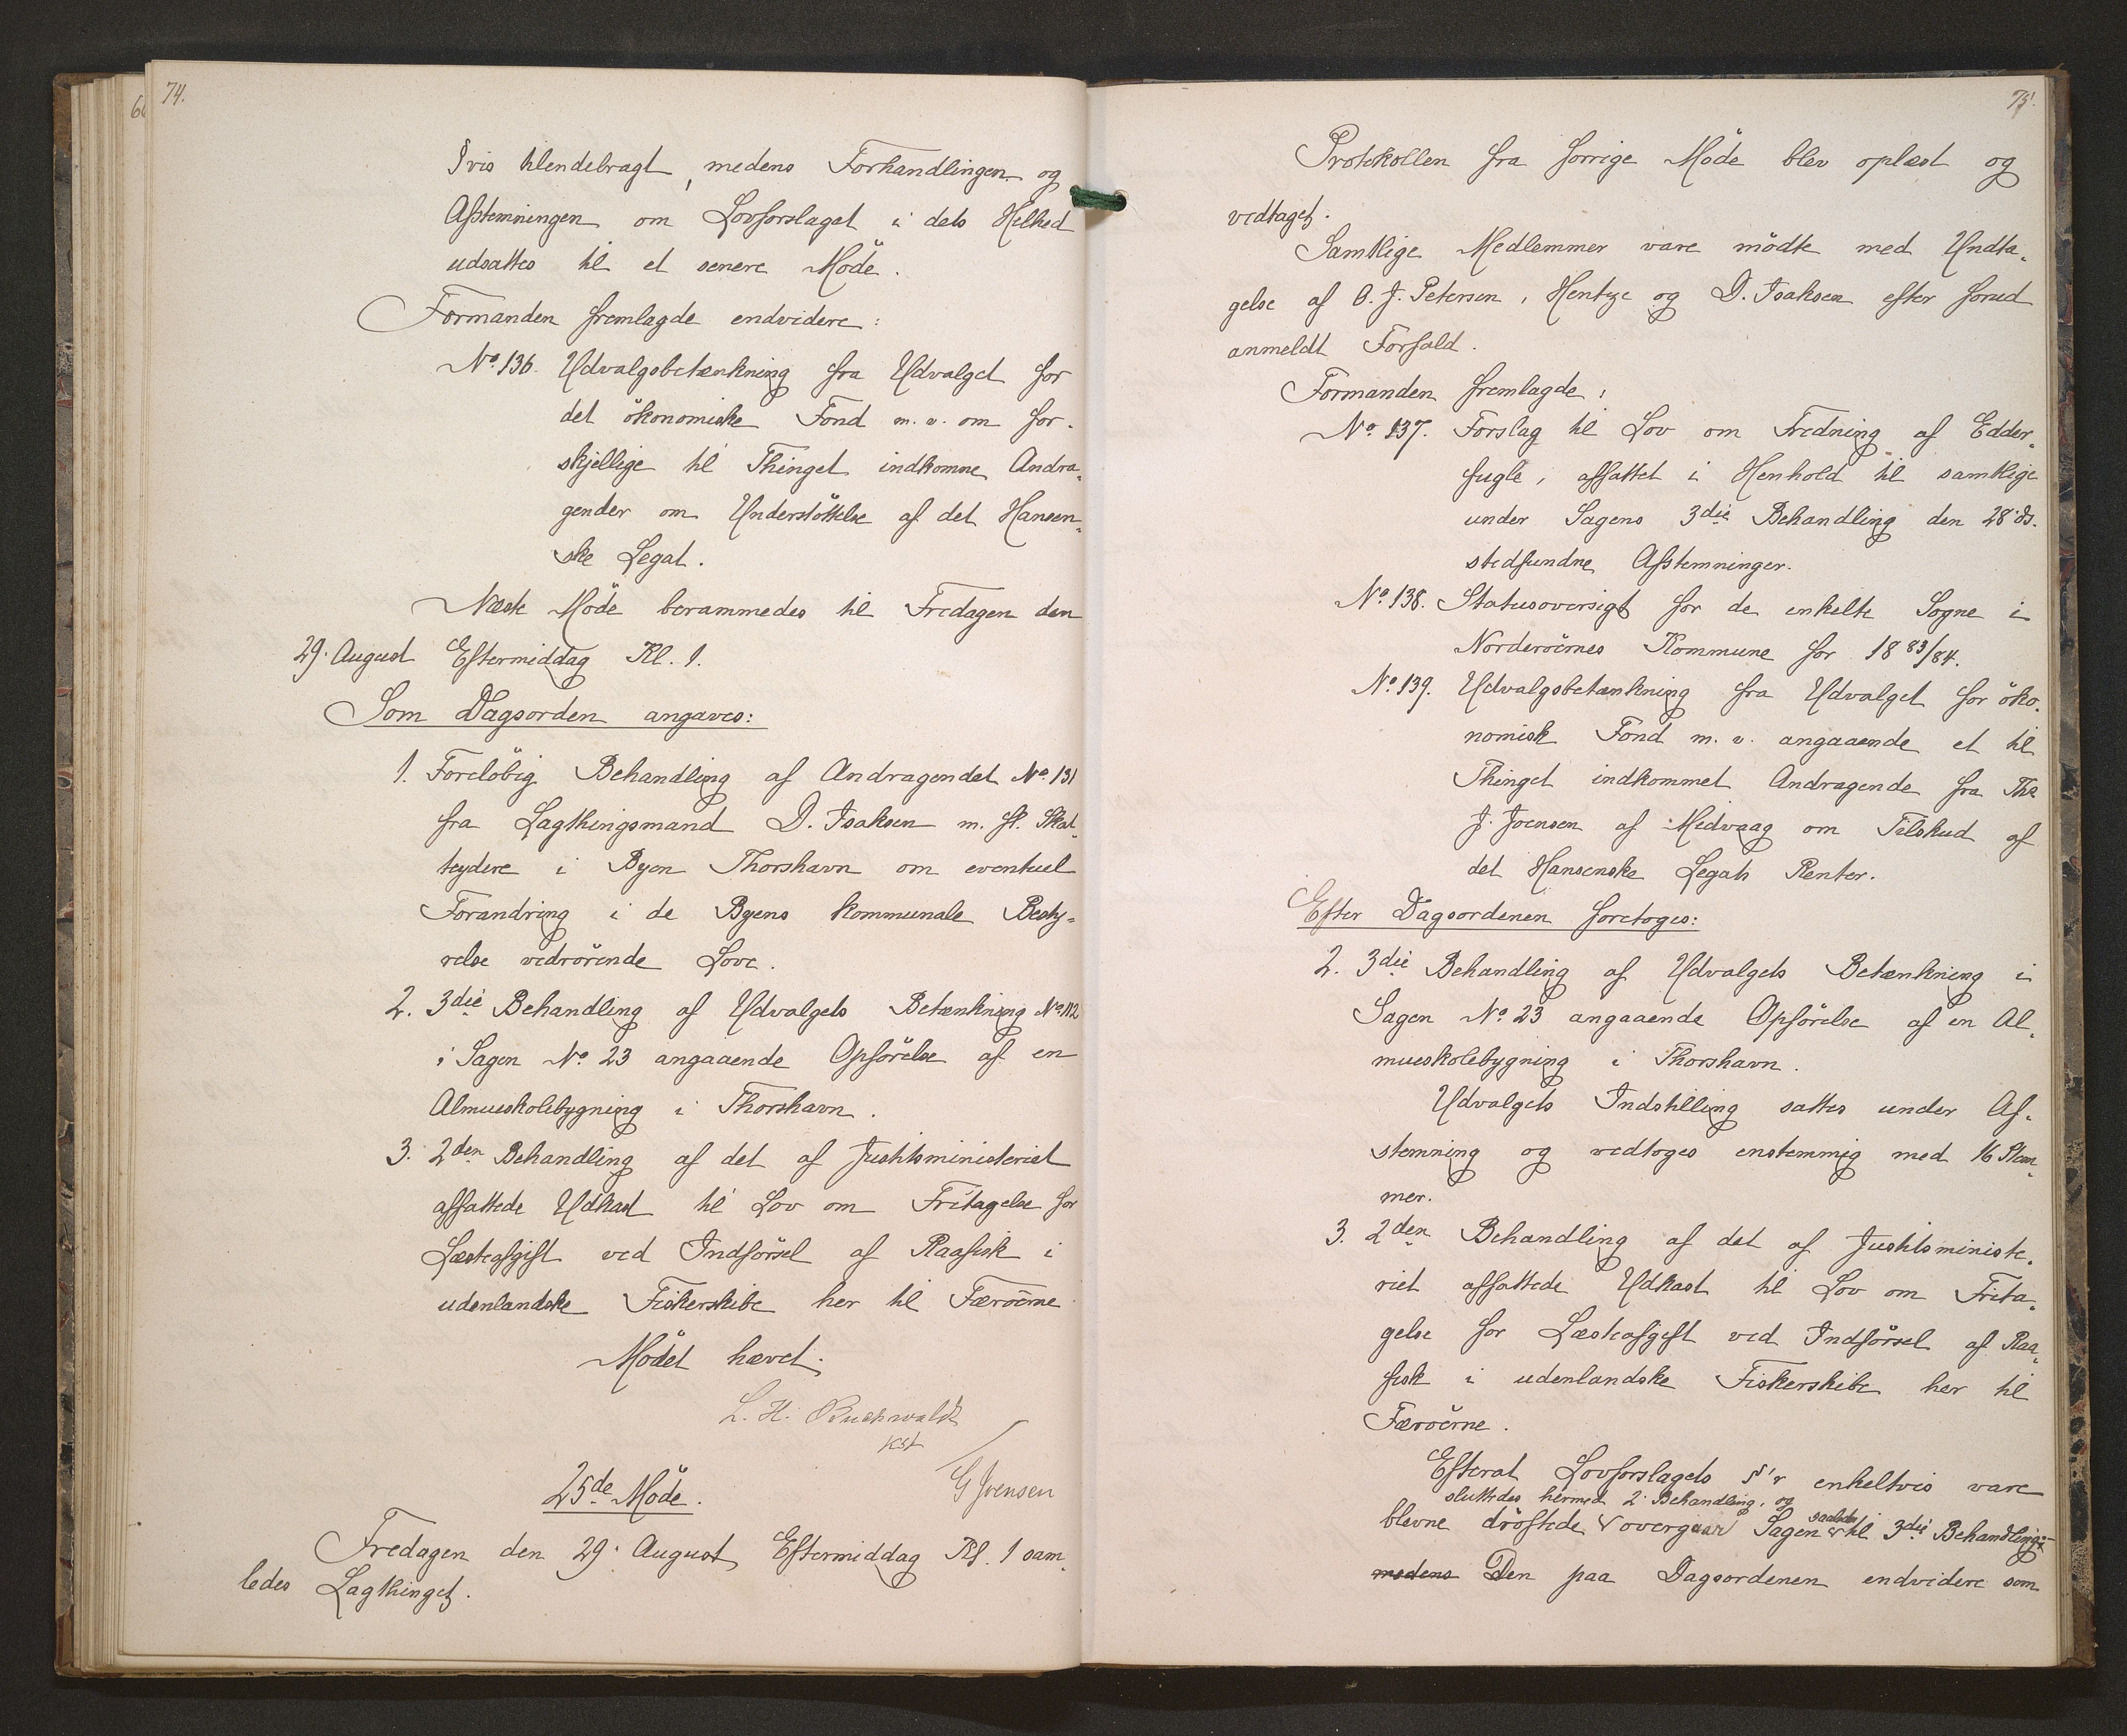 74.
§vis tilendebragt, medens Forhandlingen og
Afstemningen om Lovforslaget i dets Helhed
udsattes til et senere Möde.
Formanden fremlagde endvidere:
No. 136. Udvalgsbetænkning fra Udvalget for
det ökonomiske Fond m. v. om for-
skjellige til Thinget indkomne Andra-
gender om Understöttelse af det Hansen-
ske Legat.
Næste Möde berammedes til Fredagen den
29. August Eftermiddag Kl. 1.
Som Dagsorden angaves:
1. Forelöbig Behandling af Andragendet No. 131
fra Lagthingsmand D. Isaksen m. fl. Skat-
teydere i Byen Thorshavn om eventuel
Forandring i de Byens kommunale Besty-
relse vedrörende Love.
2. 3die Behandling af Udvalgets Betænkning No 112
i Sagen No. 23 angaaende Opförelse af en
Almueskolebygning i Thorshavn.
3. 2den Behandling af det af Justitsministeriet
affattede Udkast til Lov om Fritagelse for
Læsteafgift ved Indförsel af Raafisk i
udenlandske Fiskerskibe her til Færöerne
Mödet hævet.
L. H. Buchwaldt
kst
G Joensen
25de Möde.
Fredagen den 29. August Eftermiddag Kl. 1 sam-
ledes Lagthinget.
75.
Protokollen fra forrige Möde blev oplæst og
vedtaget.
Samtlige Medlemmer vare mödte med Undta-
gelse af O. J. Petersen, Hentze og D. Isaksen efter forud
anmeldt Forfald.
Formanden fremlagde:
No. 137. Forslag til Lov om Fredning af Edder-
fugle, affattet i Henhold til samtlige
under Sagens 3die Behandling den 28. ds.
stedfundne Afstemninger.
No. 138. Statusoversigt for de enkelte Sogne i
Norderöernes Kommune for 1883/84.
No. 139. Udvalgsbetænkning fra Udvalget for öko-
nomisk Fond m. v. angaaende et til
Thinget indkommet Andragende fra Ths
J. Joensen af Midvaag om Tilskud af
det Hansenske Legats Renter.
Efter Dagsordenen foretoges:
2. 3die Behandling af Udvalgets Betænkning i
Sagen No. 23 angaaende Opförelse af en Al-
mueskolebygning i Thorshavn.
Udvalgets Indstilling sattes under Af-
stemning og vedtoges enstemmig med 16 Stem-
mer.
3. 2den Behandling af det af Justitsministe-
riet affattede Udkast til Lov om Frita-
gelse for Læsteafgift ved Indförsel af Raa-
fisk i udenlandske Fiskerskibe her til
Færöerne.
Efterat Lovforslagets §'r enkeltvis vare
sluttedes hermed 2. Behandling, og saaledes
blevne dröftede overgaar Sagen til 3die Behandling
medens Den paa Dagsordenen endvidere som